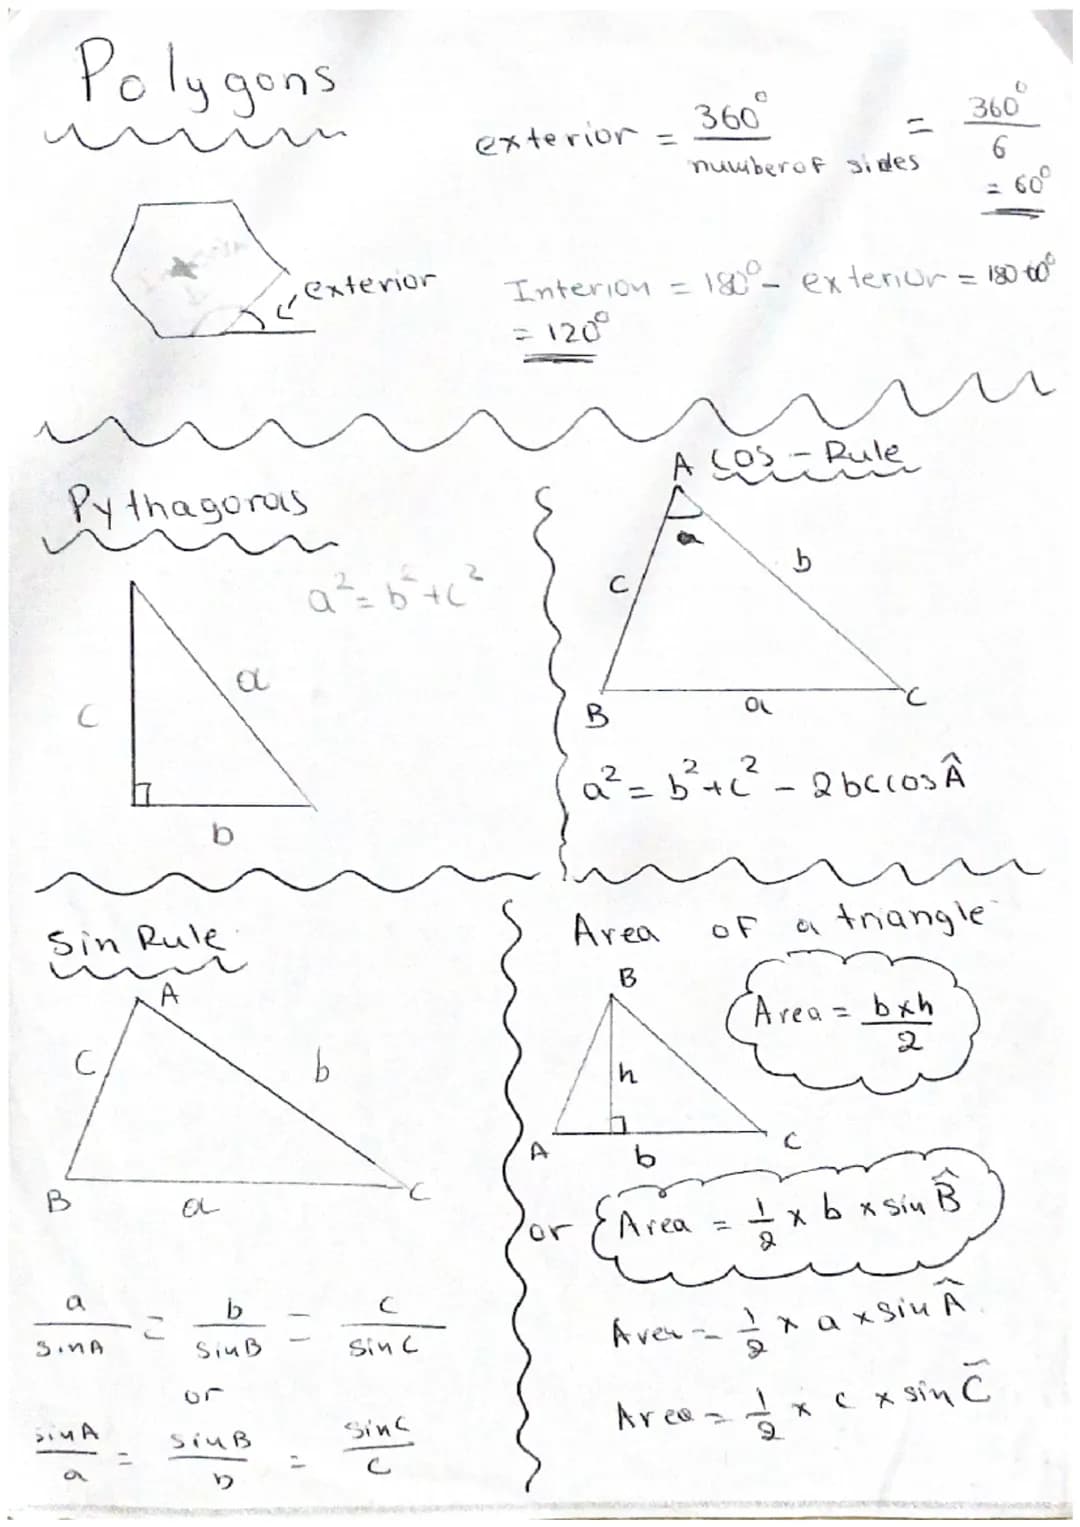 Polygons
exterior = 360° / number of sides = 360° / 6
= 60°
exterior
Interior = 180° - exterior = 180-60°
= 120°
Pythagoras
a² = b² + c²
c
a
b
Cos - Rule
A
a
c
b
B
a
C
a² = b² + c² - 2bc cos Â
Sin Rule
A
c
b
B
a
C
a / sinA = b / sinB = c / sinC
or
sinA / a = sinB / b = sinC / c
Area of a triangle
B
h
A
b
C
Area = bxh / 2
or Area = 1/2 x b x sin B̂
Area = 1/2 x a x sin Â
Area = 1/2 x c x sin Ĉ